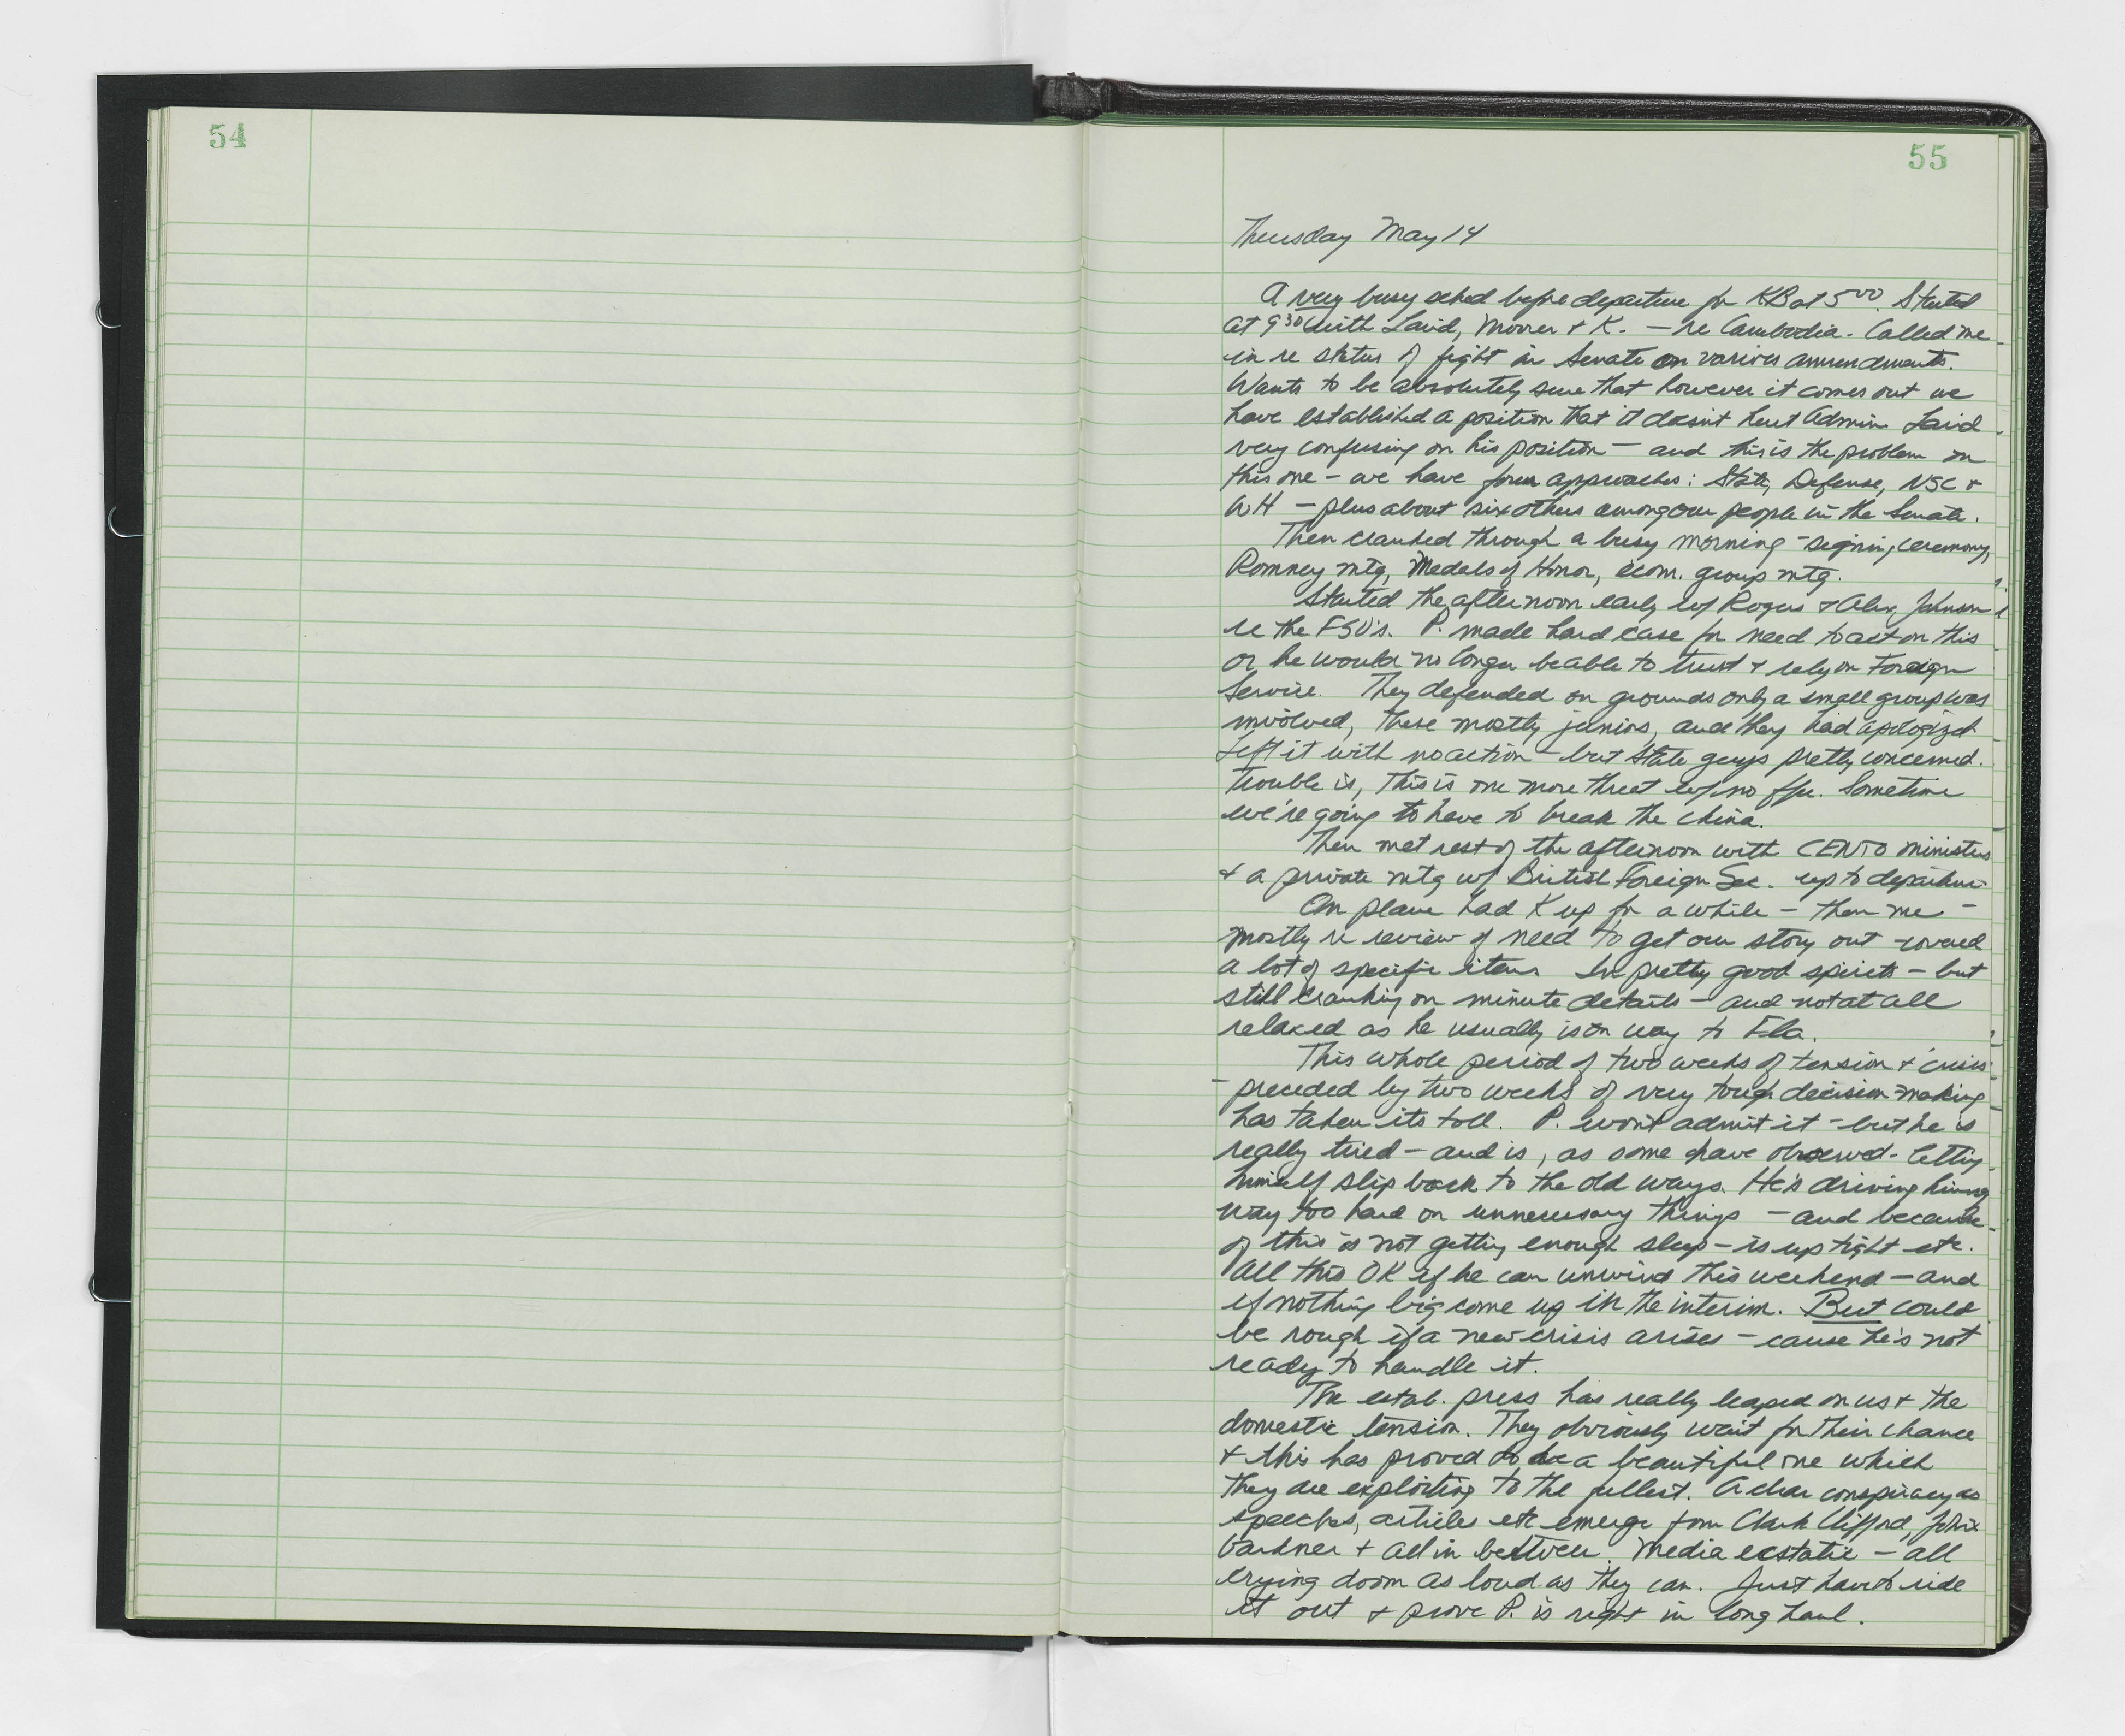 54
55
Thursday May 14
A very busy sched before departure for KB at 5⁰⁰. Started
at 9³⁰ with Laird, Moorer & K. — re Cambodia. Called me
in re status of fight in Senate on various amendments.
Wants to be absolutely sure that however it comes out we
have established a position that it doesn't hurt Admin. Laird
very confusing on his position — and this is the problem on
this one – we have four approaches: State, Defense, NSC &
WH — plus about six others among our people in the Senate.
Then cranked through a busy morning – signing ceremony,
Romney mtg, Medals of Honor, econ. group mtg.
Started the afternoon early w/ Rogers & Alex Johnson
re the FSO's. P. made hard case for need to act on this
or he would no longer be able to trust & rely on Foreign
Service. They defended on grounds only a small group was
involved, these mostly juniors, and they had apologized.
Left it with no action – but State guys pretty concerned.
Trouble is, this is one more threat w/ no ffu. Sometime
we're going to have to break the china.
Then met rest of the afternoon with CENTO ministers
& a private mtg w/ British Foreign Sec. up to departure
On plane had K up for a while – then me –
mostly re review of need to get our story out – covered
a lot of specific items In pretty good spirits – but
still cranking on minute details – and not at all
relaxed as he usually is on way to Fla.
This whole period of two weeks of tension & crisis
– preceded by two weeks of very tough decision making
has taken its toll. P. won't admit it – but he is
really tired – and is, as some have observed – letting
himself slip back to the old ways. He's driving himself
way too hard on unnecessary things – and because
of this is not getting enough sleep – is up tight etc.
All this OK if he can unwind this weekend – and
if nothing big come up in the interim. But could
be rough if a new crisis arises – cause he's not
ready to handle it.
The estab. press has really leaped on us & the
domestic tension. They obviously wait for their chance
& this has proved to be a beautiful one which
they are exploiting to the fullest. A clear conspiracy as
speeches, articles etc emerge from Clark Clifford, John
Gardner & all in between. Media ecstatic – all
crying doom as loud as they can. Just have to ride
it out & prove P. is right in long haul.